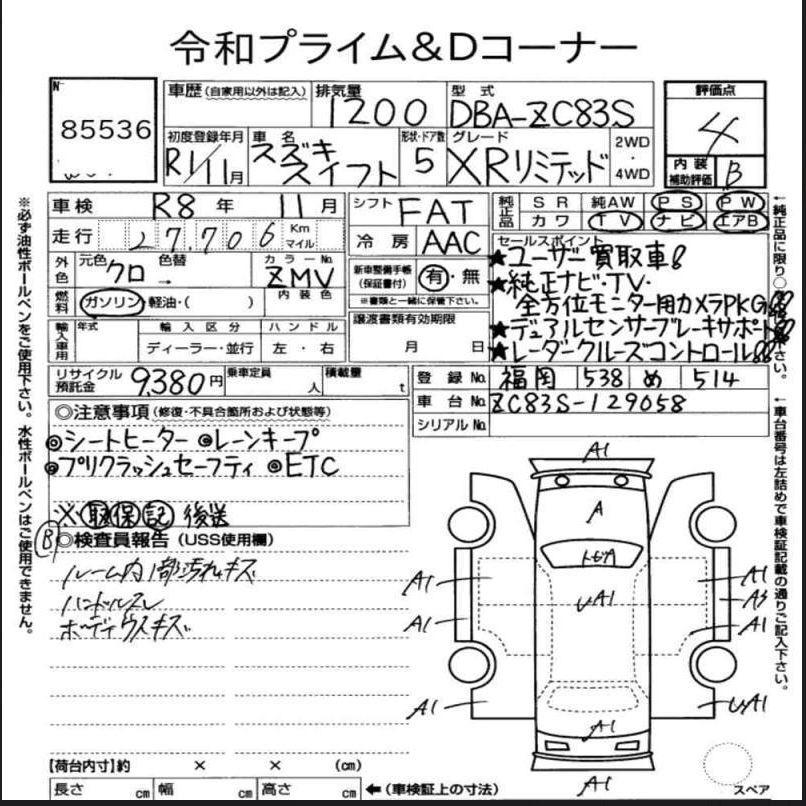 令和プライム&Dコーナー
No
85536
車歴 (自家用以外は記入)
排気量
1200
型式
DBA-ZC83S
評価点
4
初度登録年月
R1/11月
車名
スズキ
スイフト
形状・ドア数
5
グレード
XRリミテッド
2WD
・
4WD
内装
補助評価
B
車検 R8年 11月
シフト FAT
純正品
SR 純AW PS PW
カワ TV ナビ エアB
走行 27,706 Km
マイル
冷房 AAC
セールスポイント
★ユーザー買取車!!
★純正ナビ・TV・
全方位モニター用カメラPKG!!
★デュアルセンサーブレーキサポート!!
★レーダークルーズコントロール!!
外色
元色 色替
クロ →
カラーNo.
ZMV
新車整備手帳
(保証書付)
有・無
※書類と一緒に保管下さい。
燃料
ガソリン・軽油・( )
内装色
輸入車用
年式
輸入区分
ディーラー・並行
ハンドル
左・右
譲渡書類有効期限
月 日
リサイクル
預託金
9,380円
乗車定員
人
積載量
t
登録No. 福岡 538 め 514
車台No. ZC83S-129058
シリアルNo.
◎注意事項(修復・不具合箇所および状態等)
◎シートヒーター ◎レーンキープ
◎プリクラッシュセーフティ ◎ETC
※取保記 後送
B
◎検査員報告 (USS使用欄)
ルーム内1部汚れキズ
ハンドルスレ
ボディウスキズ
A1
A
トビA
A1
UA1
A1
A3
A1
A1
A1
UA1
A1
A1
【荷台内寸】約 × × (cm)
長さ cm 幅 cm 高さ cm
←(車検証上の寸法)
スペア
※必ず油性ボールペンをご使用下さい。水性ボールペンはご使用できません。
←純正品に限り○ ださい。
←車台番号は左詰めで車検証記載の通りご記入下さい。